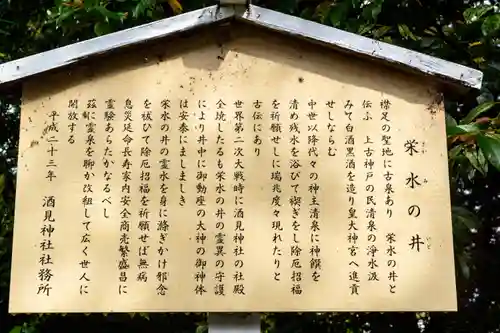 栄水の井
さかみ
いど
襟足の聖地に古泉あり 栄水の井と
伝ふ 上古神戸の民清泉の浄水汲
みて白酒黒酒を造り皇大神宮へ進貢
せしならむ
中世以降代々の神主清泉に神饌を
清め残水を浴びて禊ぎをし除厄招福
を祈願せしに瑞兆度々現れたりと
古伝にあり
世界第二次大戦時に酒見神社の社殿
全焼したるも栄水の井の霊異の守護
により井中に御動座の大神の御神体
は安泰にましましき
栄水の井の霊水を身に滌ぎかけ邪念
を祓ひて除厄招福を祈願せば無病
息災延命長寿家内安全商売繁盛昌に
霊験あらたかなるべし
茲に霊泉を聊か改組して広く世人に
開放する
平成二十三年 酒見神社社務所